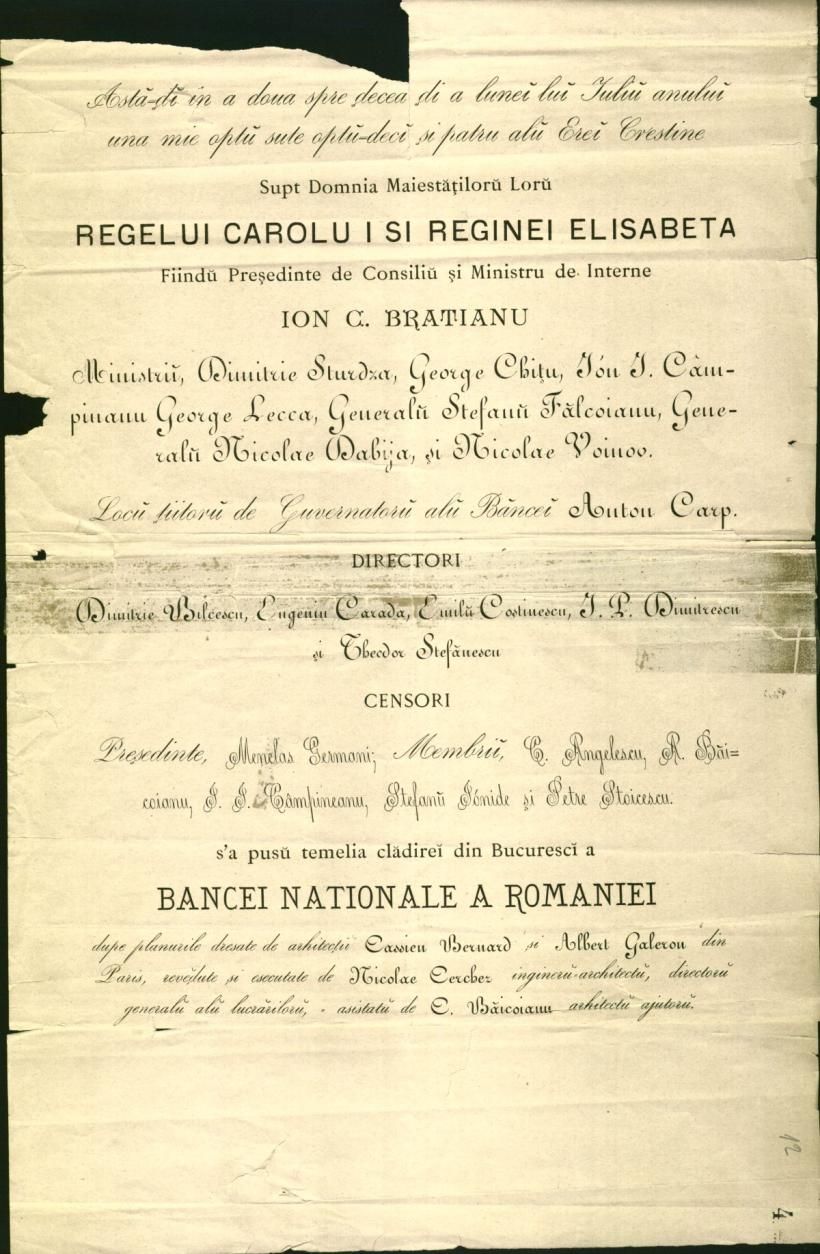 Astă-ḑĭ in a doua spre ḑecea ḑi a luneĭ luĭ Iuliŭ anuluĭ
una mie optŭ sute optŭ-ḑecĭ și patru alŭ Ereĭ Crestine
Supt Domnia Maiestăţilorŭ Lorŭ
REGELUI CAROLU I SI REGINEI ELISABETA
Fiindŭ Preşedinte de Consiliŭ şi Ministru de Interne
ION C. BRATIANU
Ministriĭ, Dimitrie Sturdza, George Chiţu, Ión I. Câm-
pinanu George Lecca, Generalŭ Stefanŭ Fălcoianu, Gene-
ralŭ Nicolae Dabija, şi Nicolae Voinov.
Locŭ ţiitorŭ de Guvernatorŭ alŭ Bănceĭ Anton Carp.
DIRECTORI
Dimitrie Bilcescu, Eugeniu Carada, Emilŭ Costinescu, I. P. Dimitrescu
şi Theodor Stefănescu
CENSORI
Preşedinte, Menelas Germani; Membriĭ, C. Angelescu, A. Băi=
coianu, I. I. Câmpineanu, Stefanŭ Iónide şi Petre Stoicescu.
s'a pusŭ temelia clădireĭ din Bucurescĭ a
BANCEI NATIONALE A ROMANIEI
dupe planurile dresate de arhitecţiĭ Cassien Bernard și Albert Galeron din
Paris, revĕḑute și esecutate de Nicolae Cerchez inginerŭ-architectŭ, directorŭ
generalŭ alŭ lucrărilorŭ, - asistatŭ de C. Băicoianu arhitectŭ ajutorŭ.
12
4